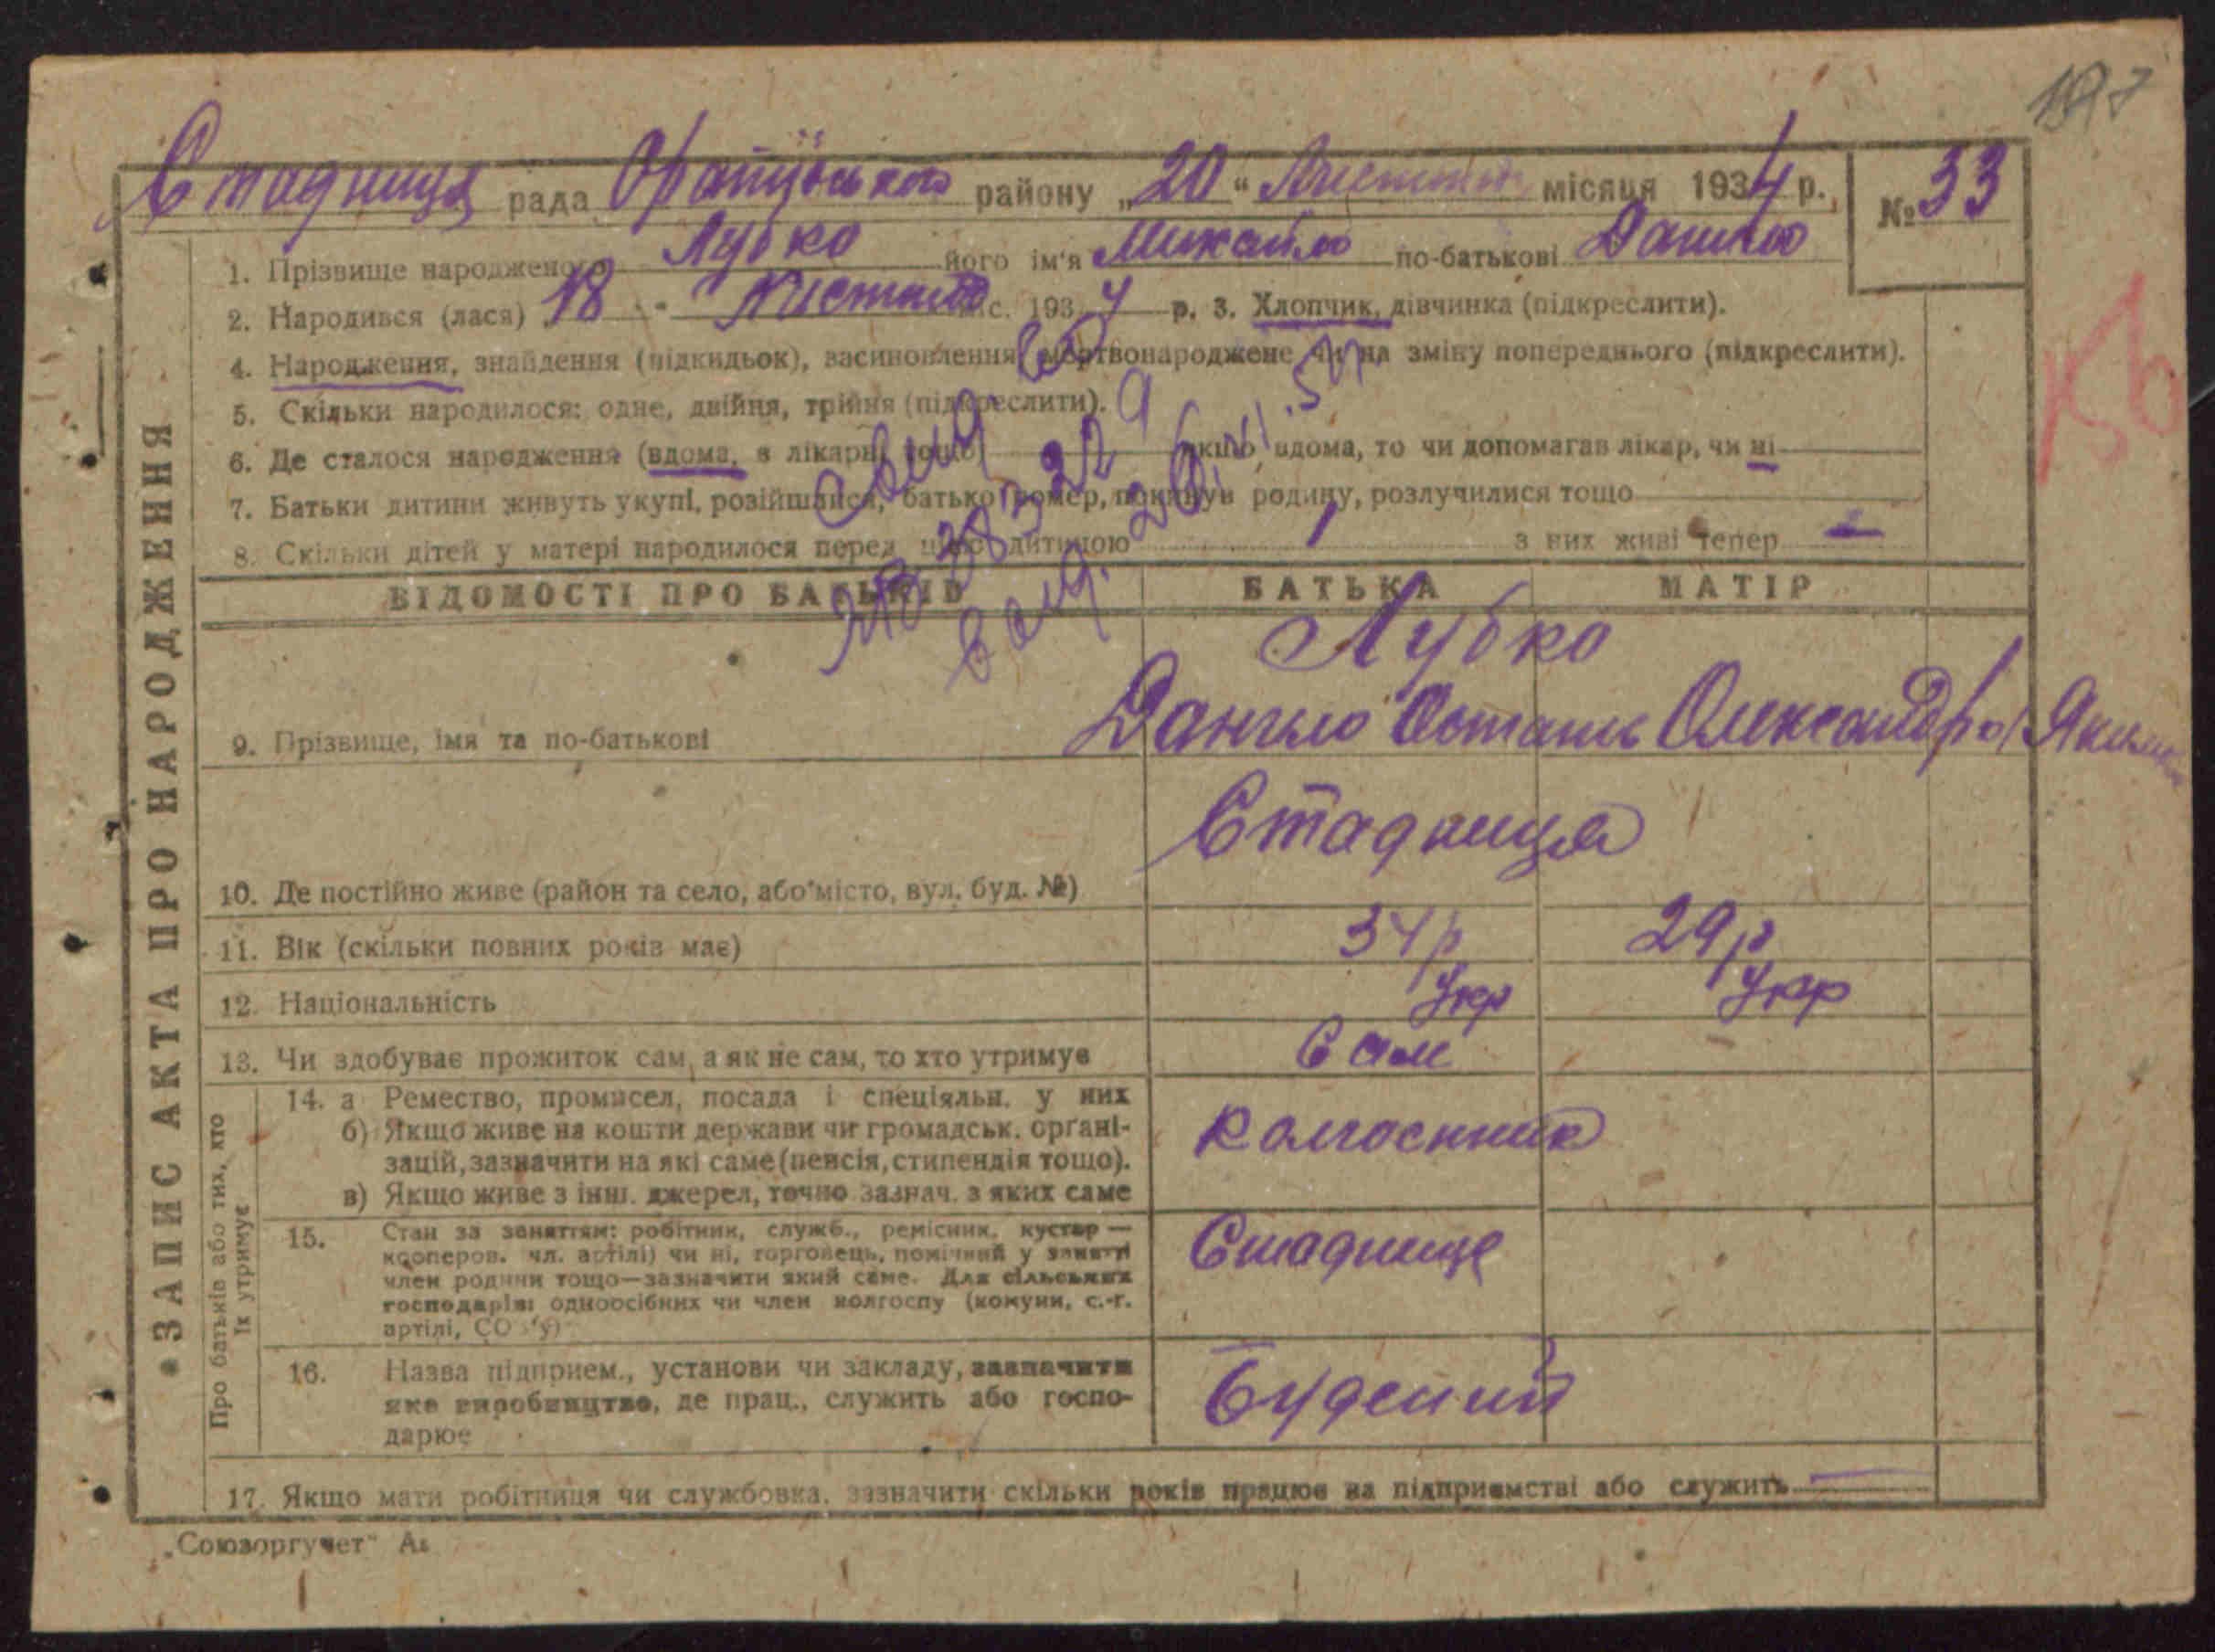 Стадниця рада Оратівського району „20“ Листопад місяця 1934 р. № 33
1. Прізвище народженого Лубко його ім'я Михайло по-батькові Данило
2. Народився (лася) 18 Листопад міс. 1934 р. 3. Хлопчик, дівчинка (підкреслити).
4. Народження, знайдення (підкидьок), засиновлення, мертвонароджене чи на зміну попереднього (підкреслити).
5. Скільки народилося: одне, двійня, трійня (підкреслити).
6. Де сталося народження (вдома, в лікарні тощо) якщо вдома, то чи допомагав лікар, чи ні
7. Батьки дитини живуть укупі, розійшлися, батько помер, покинув родину, розлучилися тощо
8. Скільки дітей у матері народилося перед цією дитиною 1 з них живі тепер
ВІДОМОСТІ ПРО БАТЬКІВ БАТЬКА МАТІР
Лубко
9. Прізвище, імя та по-батькові Данило Остапів Олександра
Стадниця
10. Де постійно живе (район та село, або місто, вул. буд. №)
11. Вік (скільки повних років має) 34 р 29 р
12. Національність Укр Укр
13. Чи здобуває прожиток сам, а як не сам, то хто утримує Сам
14. а Ремество, промисел, посада і спеціяльн. у них
б) Якщо живе на кошти держави чи громадськ. органі-
зацій, зазначити на які саме (пенсія, стипендія тощо).
в) Якщо живе з інш. джерел, точно зазнач. з яких саме
колгоспник
15. Стан за заняттям: робітник, служб., ремісник, кустар —
кооперов. чл. артілі) чи ні, торговець, помічний у занятті
член родини тощо—зазначити який саме. Для сільських
господарів: одноосібних чи член колгоспу (комуни, с.-г.
артілі, СО
Стадниця
16. Назва підприєм., установи чи закладу, зазначити
яке виробництво, де прац., служить або госпо-
дарює
Будений
17. Якщо мати робітниця чи службовка, зазначити скільки років працює на підприємстві або служить
Про батьків або тих, хто
їх утримує
ЗАПИС АКТА ПРО НАРОДЖЕННЯ
„Союзоргучет“